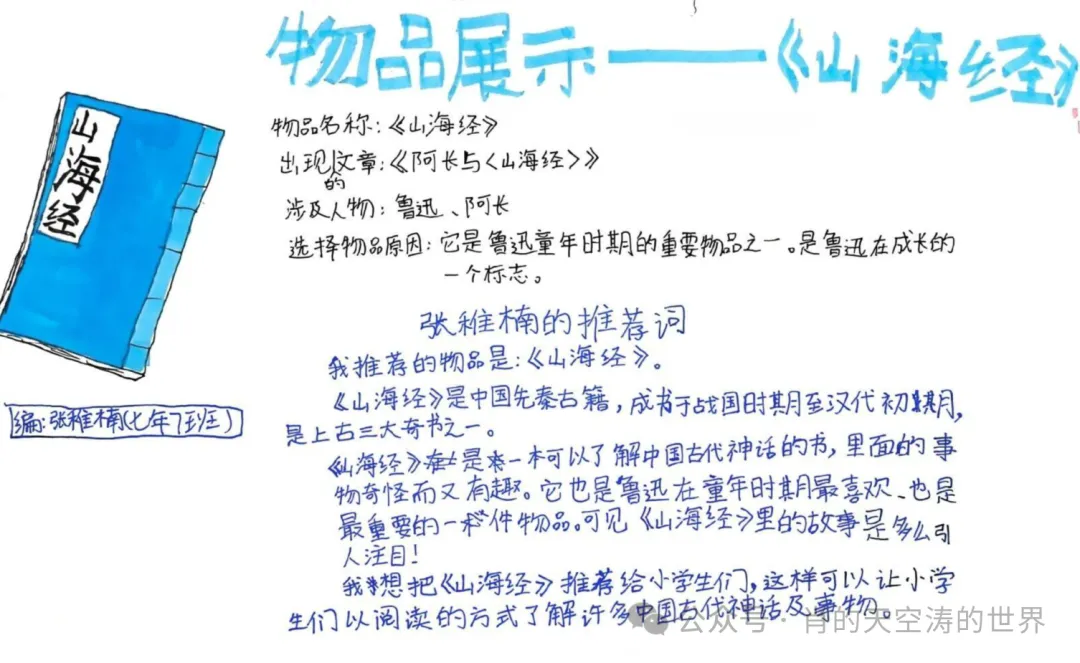 物品展示——《山海经》
山海经
物品名称:《山海经》
出现的文章:《阿长与〈山海经〉》
涉及人物:鲁迅、阿长
选择物品原因:它是鲁迅童年时期的重要物品之一。是鲁迅在成长的
一个标志。
张稚楠的推荐词
我推荐的物品是:《山海经》。
《山海经》是中国先秦古籍,成书于战国时期至汉代初期,
是上古三大奇书之一。
编:张稚楠(七年7班)
《山海经》是一本可以了解中国古代神话的书,里面的事
物奇怪而又有趣。它也是鲁迅在童年时期最喜欢、也是
最重要的一件物品。可见《山海经》里的故事是多么引
人注目!
我想把《山海经》推荐给小学生们,这样可以让小学
生们以阅读的方式了解许多中国古代神话及事物。
公众号·肖的天空涛的世界